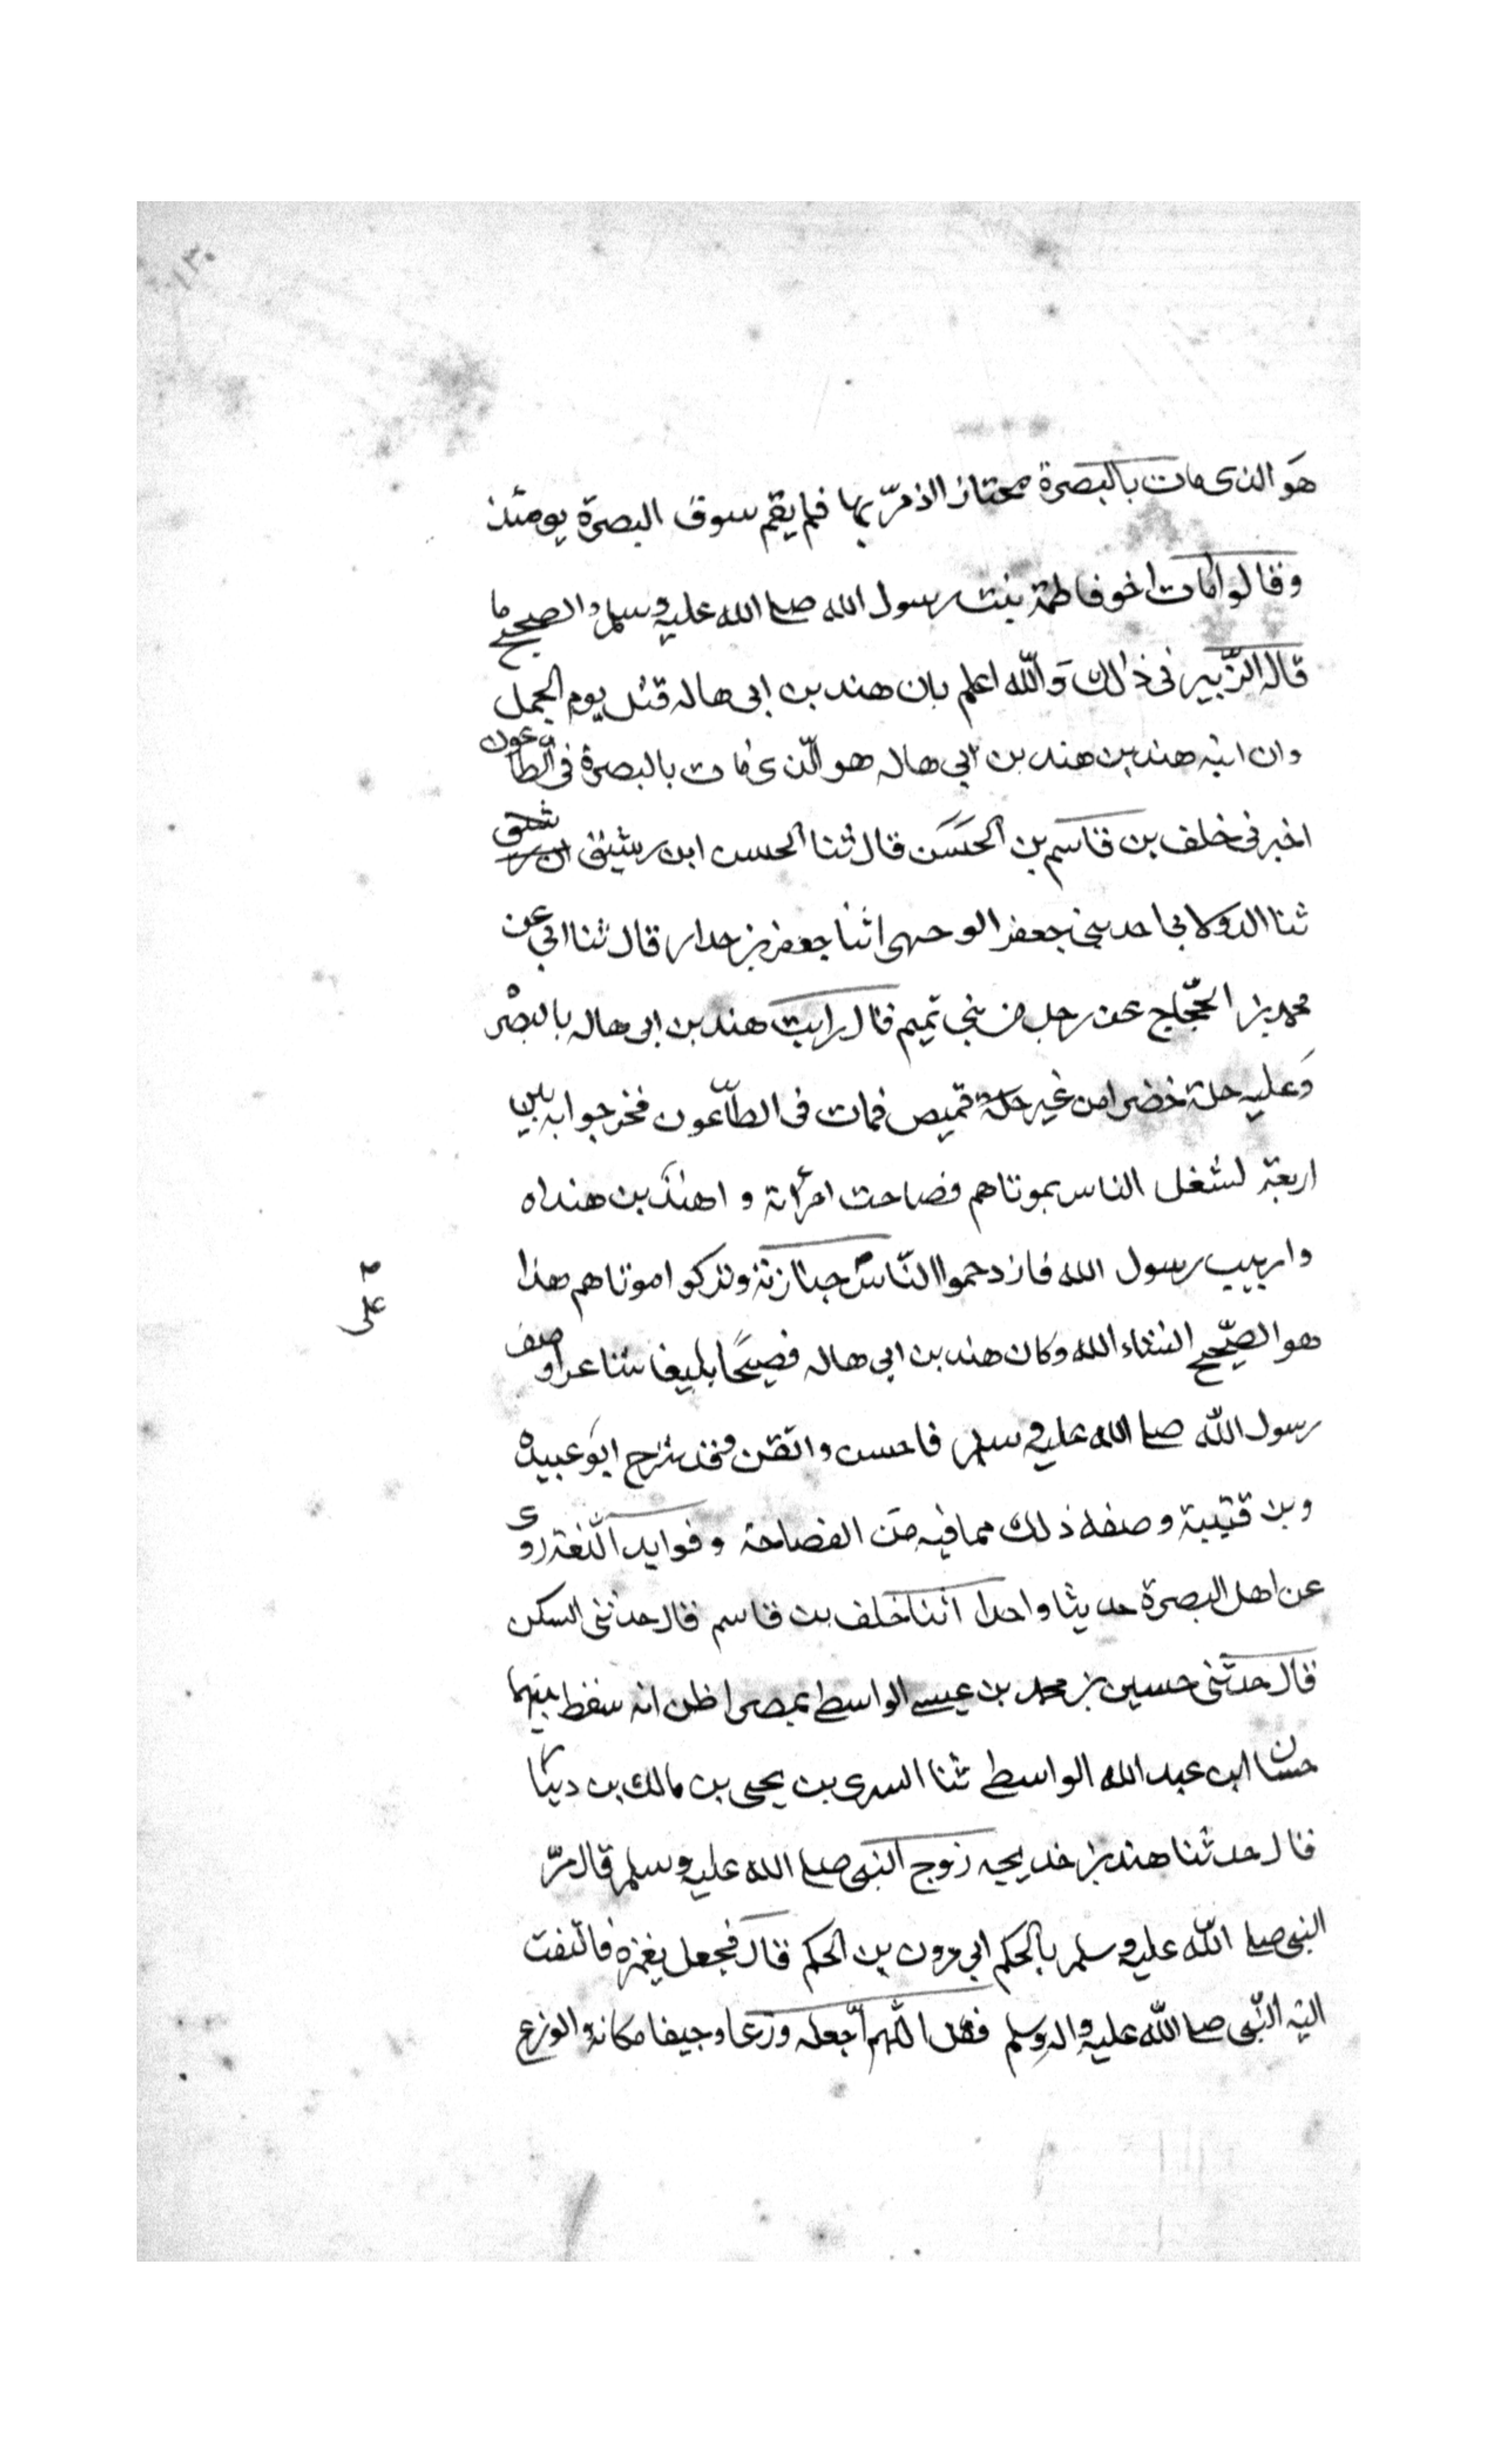 ١٣٠
هو الذى مات بالبصرة مجتازا اذ مرّ بها فلم يقم سوق البصرة يومئذ
وقالوا مات اخو فاطمة بنت رسول الله صلى الله عليه وسلم والصحيح ما
قاله الزّبير فى ذلك وَاللّه اعلم بان هند بن ابى هاله قتل يوم الجمل
وان ابنه هند بن هند بن ابي هاله هو الّذى مات بالبصرة فى الطّاعون
اخبرنى خلف بن قاسم بن الحَسَن قال ثنا الحسن ابن رشيق
ثنا الدولابى احدثنى جعفر الوحهى اثنا جعفر بن حدار قال ثنا ابي عن
محمد بن الحجّاج عن رجل من بني تميم قال رايت هند بن ابى هاله بالبصرْه
وَعليه حلة خضرا من غير قميص فمات فى الطّاعون فخرجوا به بين
اربعة لشغل الناس بموتاهم فصاحت امرأة واهندَ بن هنداه
واربيب رسول الله فازدحموا النّاس جنازته وتركوا موتاهم هذا
على
هو الصّحيح انشاء الله وكان هند بن ابى هاله فصيحًا بليغا شاعرا وصف
رسول اللّه صلى الله عليه وسلم فاحسن واتقن وقد شرح ابوَ عبيده
وبن قتيبة وصفه ذلك مما فيه منَ الفصاحة وفوايد اللّغة روى
عن اهل البصرة حديثا واحدا اثنا خلف بن قاسم قال حدثنى السكن
قال حدثنى حسين بن محمد بن عيسى الواسطي بمصر اظن انه سقط بينهما
حسان ابن عبد الله الواسطي ثنا السرى بن يحيى بن مالك بن دينار
قال حدثنا هند بن خديجه زوج النبى صلى الله عليه وسلم قال مرّ
النبى صلى اللّه عليه وسلم بالحكم ابي مرون بن الحكم قال فجعل يغمزه فالتفت
اليه النّبى صلى اللّه عليه واله وسلم فقال اللّهم اجعله وزعا وجيفا مكانه والوزع